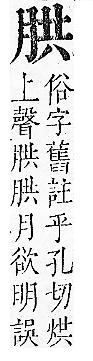 䏽
俗字舊註乎孔切烘
上聲䏽䏽月欲明誤